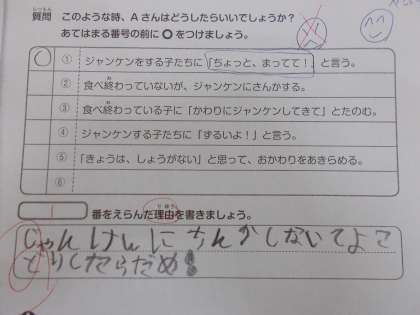 質問 このような時、Aさんはどうしたらいいでしょうか？
しつもん
あてはまる番号の前に○をつけましょう。
○ ① ジャンケンをする子たちに「ちょっと、まってて！」と言う。
② 食べ終わっていないが、ジャンケンにさんかする。
③ 食べ終わっている子に「かわりにジャンケンしてきて」とたのむ。
④ ジャンケンする子たちに「ずるいよ！」と言う。
⑤ 「きょうは、しょうがない」と思って、おかわりをあきらめる。
⑥
番をえらんだ理由を書きましょう。
りゆう
じゃんけんに
しないでよこ
どりしたらだめ！